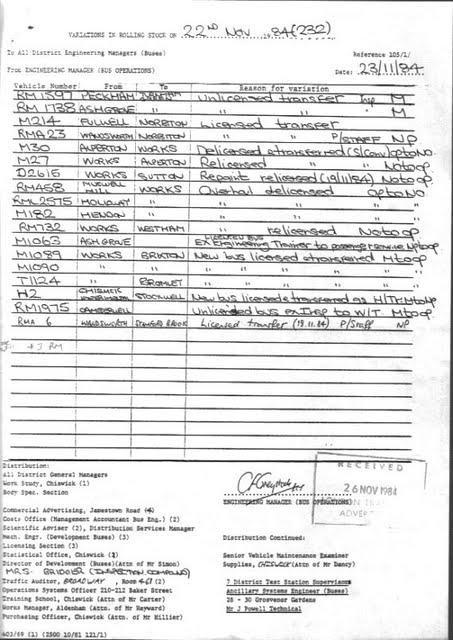 VARIATIONS IN ROLLING STOCK ON 22ND NOV 84 (232)
To All District Engineering Managers (Buses) Reference 105/1/
From ENGINEERING MANAGER (BUS OPERATIONS) Date: 23/11/84
Vehicle Number From To Reason for variation
RM 1597 PECKHAM Unlicensed transfer Insp M
RM 1738 ASHGROVE " " " M
M214 FULWELL NORBITON Licensed transfer
RMA 23 WANDSWORTH NORBITON " " P/STAFF NP
M30 ALPERTON WORKS Delicensed & transferred
M27 WORKS ALPERTON Relicensed " No to op.
D2615 WORKS SUTTON Repaint relicensed (19/11/84) No to op.
RM458 MUSWELL HILL WORKS Overhaul delicensed op to No
RML 2575 HOLLOWAY " " " "
M182 HENDON " " " "
RM732 WORKS WESTHAM " relicensed No to op
M1063 ASHGROVE " LICENCED BUS Ex Engineering Trainer to passenger service
M1089 WORKS BRIXTON New bus licensed & transferred M to op
M1090 " " " " " "
T1124 " BROMLEY " " " "
H2 CHISWICK STOCKWELL New bus licensed & transferred as H/TR M to NP
RM1975 CAMBERWELL " Unlicensed bus ex Insp to W/T. M to op
RMA 6 WANDSWORTH STAMFORD BROOK Licensed transfer (19.11.84) P/Staff NP
+ 3 RM
Distribution:
All District General Managers
Work Study, Chiswick (1)
Body Spec. Section
Commercial Advertising, Jamestown Road (4)
Costs Office (Management Accountant Bus Eng.) (2)
Scientific Adviser (2), Distribution Services Manager
Mech. Engr. (Development Buses) (3)
Licensing Section (3)
Statistical Office, Chiswick (2)
Director of Development (Buses)(Attn of Mr Simon)
MRS. BRIDGER
Traffic Auditor, BROADWAY, Room 461 (2)
Operations Systems Officer 210-212 Baker Street
Training School, Chiswick (Attn of Mr Carter)
Works Manager, Aldenham (Attn of Mr Hayward)
Purchasing Officer, Chiswick (Attn of Mr Hillier)
403/69 (1) (2500 10/81 121/1)
ENGINEERING MANAGER (BUS OPERATIONS)
RECEIVED
26 NOV 1984
ADVER
Distribution Continued:
Senior Vehicle Maintenance Examiner
Supplies, CHISWICK (Attn of Mr Dancy)
7 District Test Station Supervisors
Ancillary Systems Engineer (Buses)
28 - 30 Grosvenor Gardens
Mr J Powell Technical